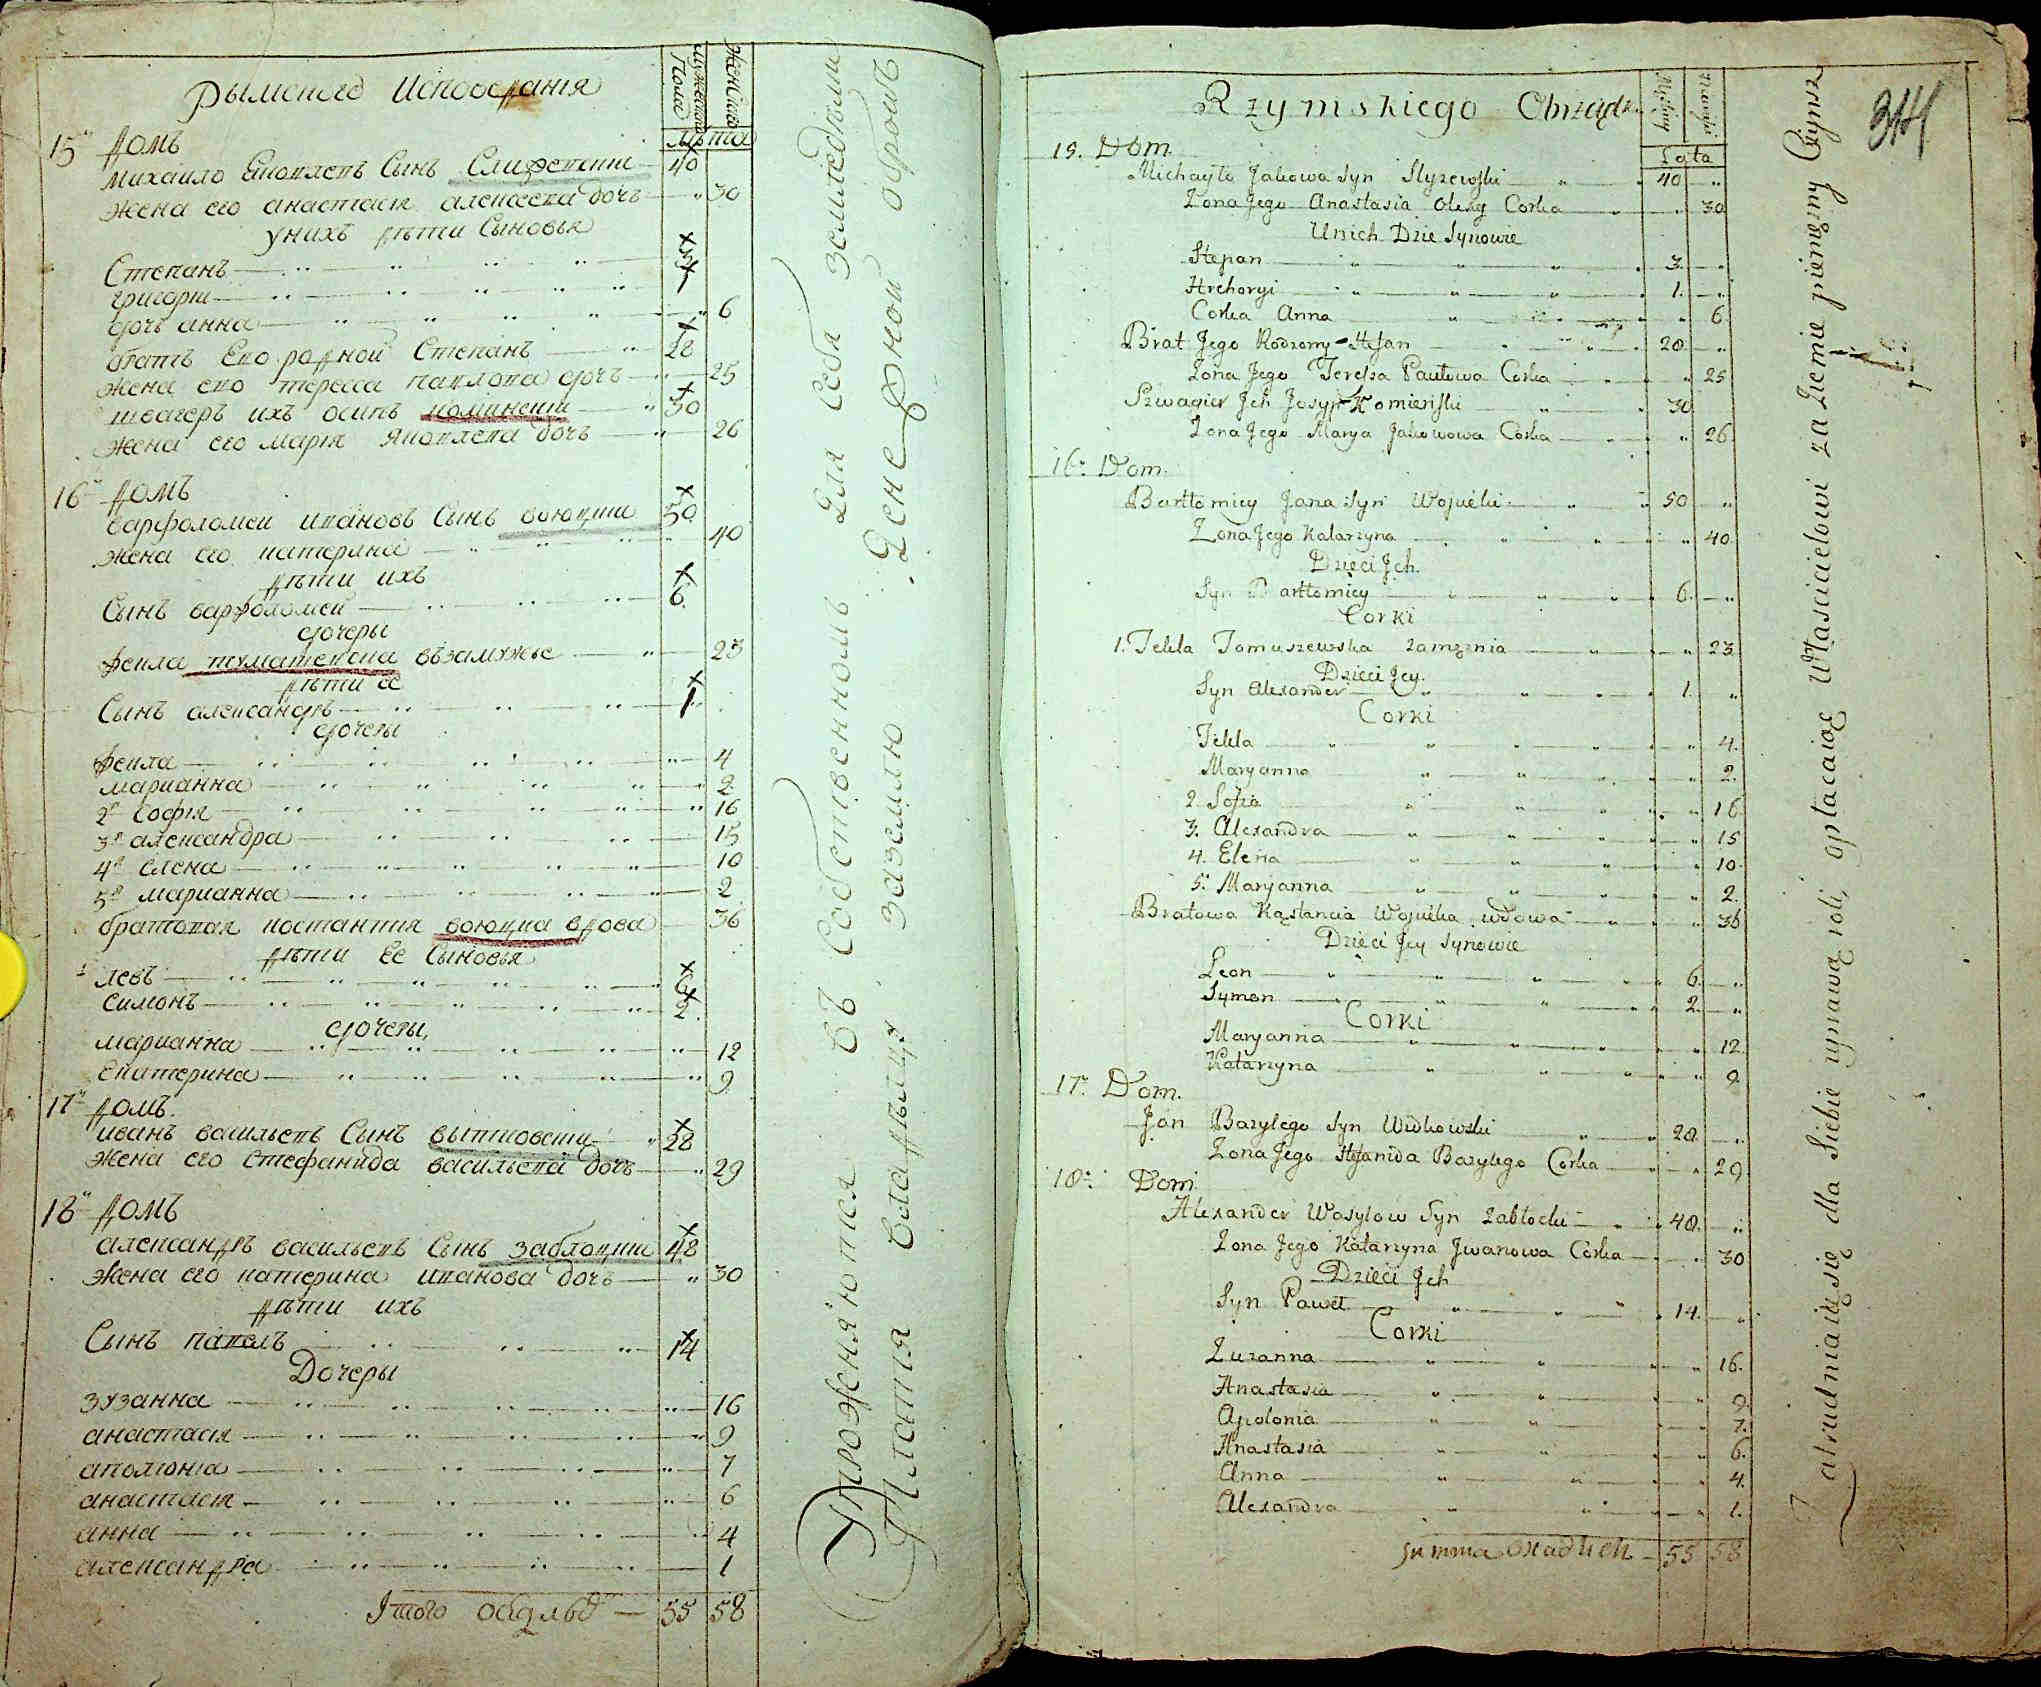 Рымского Исповеданія
Мужеска Полу
Женскаго
Лѣта
15й Домъ
Михайло Яковлевъ Сынъ 40
Жена его анастасія алексѣева дочь 30
унихъ дѣти Сыновья
Степанъ 3
григорій 1
дочь анна 6
братъ Его родной Степанъ 28
жена его тересса павлова дочь 25
швагеръ ихъ осипъ коминскій 30
жена его марія Яковлева дочь 26
16й Домъ
варфоломей ивановъ Сынъ воюцкій 50
жена его катерина 40
дѣти ихъ
Сынъ варфоломей 6
дочеры
фекла тумашевска взамужье 23
дѣти ее
Сынъ александръ 1
дочеры
фекла 4
марианна 2
2я Софія 16
3я александра 15
4я елена 10
5я марианна 2
братовая костантия воюцка вдова 36
дѣти Ее Сыновья
левъ 6
симонъ 2
дочеры
марианна 12
екатерина 9
17й домъ
иванъ васильевъ Сынъ витковскій 28
жена его стефанида васильева дочь 29
18й домъ
александръ васильевъ Сынъ заблоцкій 48
жена его катерина иванова дочь 30
дѣти ихъ
Сынъ павелъ 14
Дочеры
зузанна 16
анастасія 9
аполіоніа 7
анастасія 6
анна 4
александра 1
Итого 55 58
Упроженяются въ Собственномъ Для Себя земледѣліи
Платя владѣльцу заземлю Денежной оброкъ
Rzymskiego Obrządk.
Męskiey
Lata
344
15. Dom.
Michayło Jakowa Syn Slyzewski 40
Zona Jego Anastasia Olexy Corka 30
Unich Dzie Synowie
Stepan 3.
Hrehoryi 1.
Corka Anna 6
Brat Jego Rodzony Stefan 28
Zona Jego Teressa Pawłowa Corka 25
Szwagier Jch Josyp Komieński 30
Zona Jego Marya Jakowowa Corka 26
16. Dom.
Bartłomiey Jana Syn Wojucki 50
Zona Jego Katarzyna 40
Dzieci Jch.
Syn Bartłomiey 6.
Corki
1. Tekla Tomaszewska Zamężnia 23
Dzieci Jey.
Syn Alexander 1.
Corki
Tekla 4.
Maryanna 2.
2. Sofia 16
3. Alexandra 15
4. Elena 10.
5. Maryanna 2.
Bratowa Kąstancia Wojucka wdowa 36
Dzieci Jey Synowie
Leon 6.
Symon 2.
Corki
Maryanna 12.
Katarzyna 9
17. Dom.
Jan Bazylego Syn Widkowski 28
Zona Jego Stefanida Bazylego Corka 29
18. Dom
Alexander Wasylow Syn Zabłocki 48.
Zona Jego Katarzyna Jwanowa Corka 30
Dzieci Jch
Syn Paweł 14.
Corki
Zuzanna 16.
Anastasia 9
Apolonia 7.
Anastasia 6.
Anna 4.
Alexandra 1.
Summa 55 58
Zatrudniaią się dla Siebie uprawą roli, opłacaiąc Właścicielowi za Ziemię pienięzny Czynsz